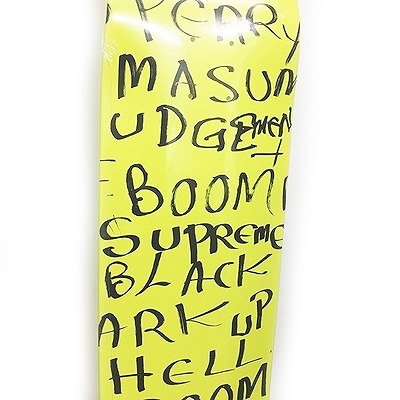 PERRY
MASUM
UDGEMEN
T
BOOM
SUPREME
BLACK
ARK UP
HELL
BOOM